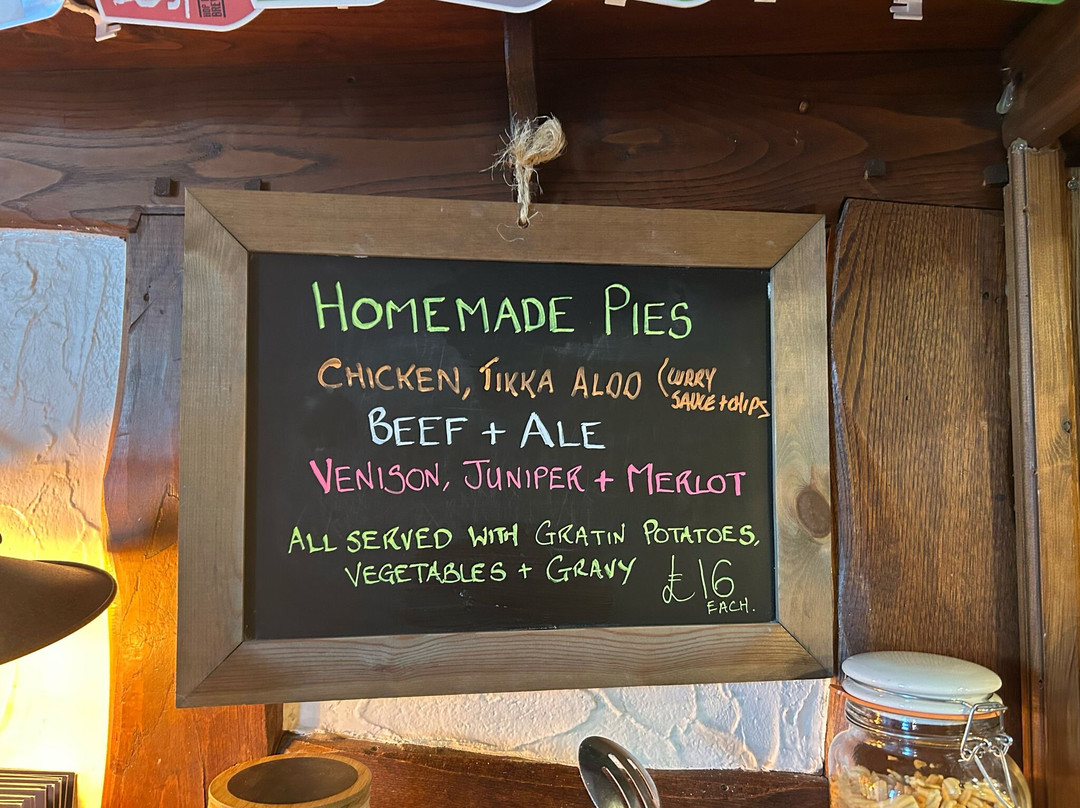 HOMEMADE PIES
CHICKEN, TIKKA ALOO (CURRY
SAUCE + CHIPS
BEEF + ALE
VENISON, JUNIPER + MERLOT
ALL SERVED WITH GRATIN POTATOES,
VEGETABLES + GRAVY
£16
EACH.